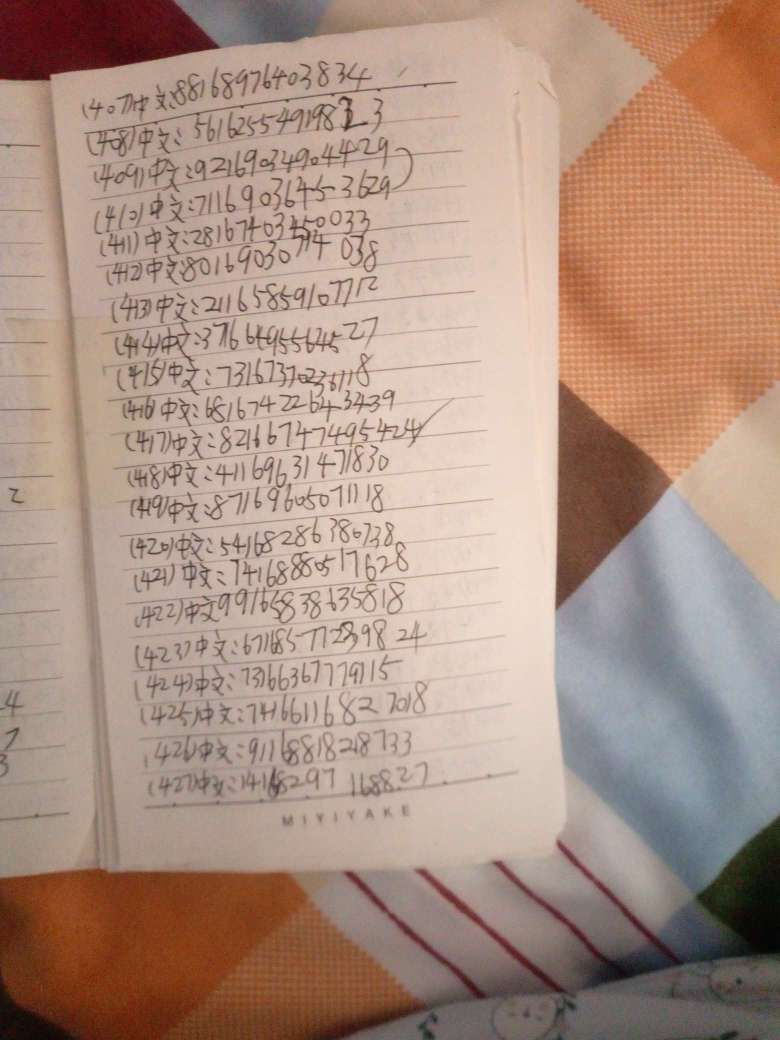 (407)中文:88168976403834
(408)中文:56162555491983 3
(409)中文:92169034904429
(410)中文:71169036453629
(411)中文:28167403450033
(412)中文:8016903074 038
(413)中文:21165859107712
(414)中文:37166495564527
(415)中文:73167370236118
(416)中文:68167422643439
(417)中文:82166747495424
(418)中文:41169631471830
(419)中文:87169605071118
(420)中文:54168286380738
(421)中文:74168880517628
(422)中文99165838635818
(423)中文:6716857712398 24
(424)中文:73166367779115
(425)中文:74166116827018
(426)中文:91168818218733
(427)中文:14168297 168827
MIYIYAKE
2
4
7
3